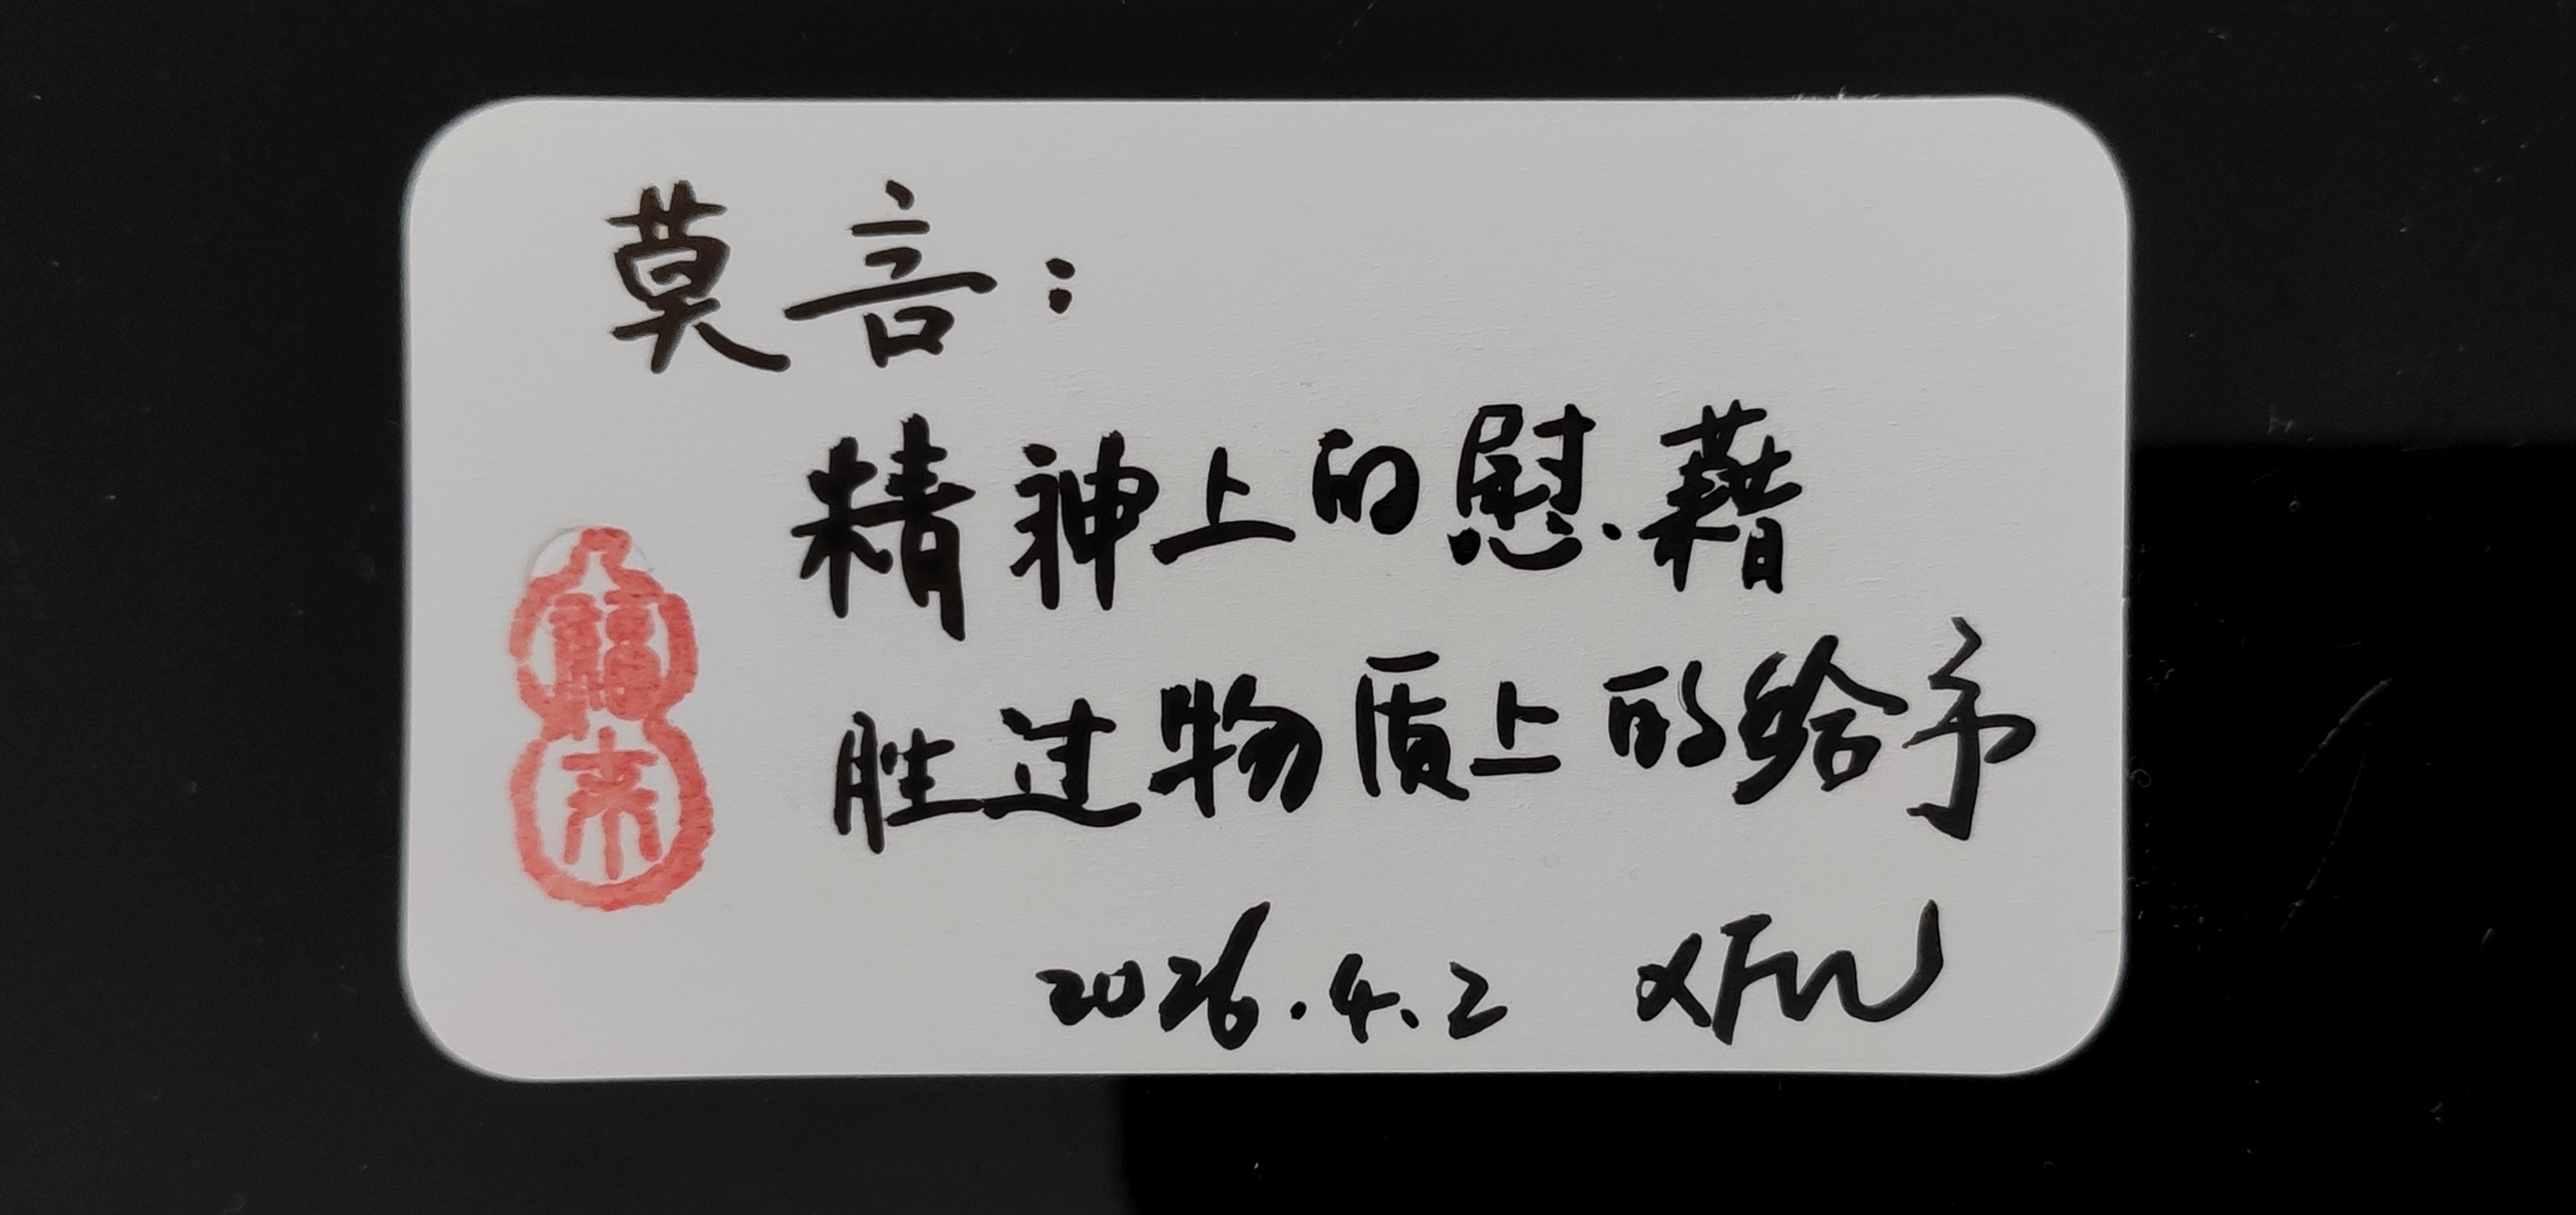 莫言：
精神上的慰藉
胜过物质上的给予
2026.4.2 XFW
福来